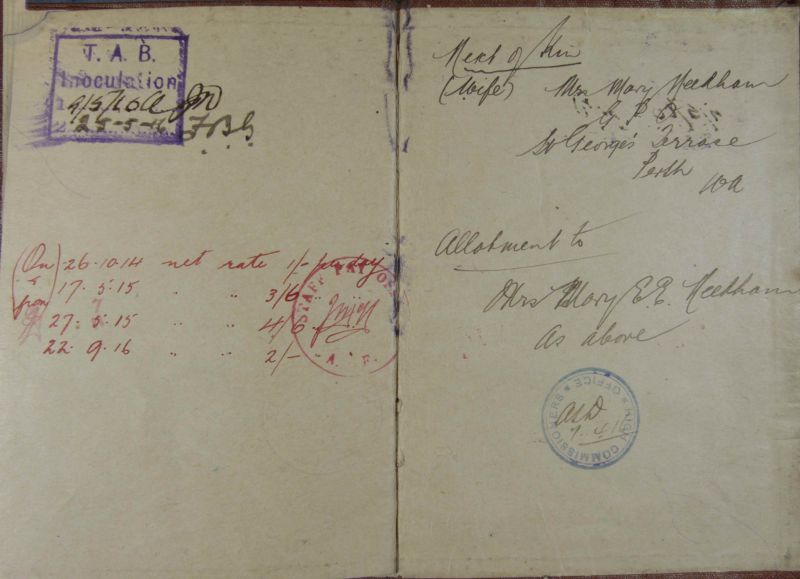 T. A. B.
Inoculation
25-5-16 F.B.G
(On 26.10.14 net rate 1/- per day
from) 17.5.15 " " 3/6
27.5.15 " " 4/6
22.9.16 " " 2/-
STAFF PAY
A. I. F.
Next of Kin
(Wife) Mrs Mary Needham
G.P.O.
St George's Terrace
Perth
WA
Allotment to
Mrs Mary E.E. Needham
As above
HIGH COMMISSIONERS OFFICE